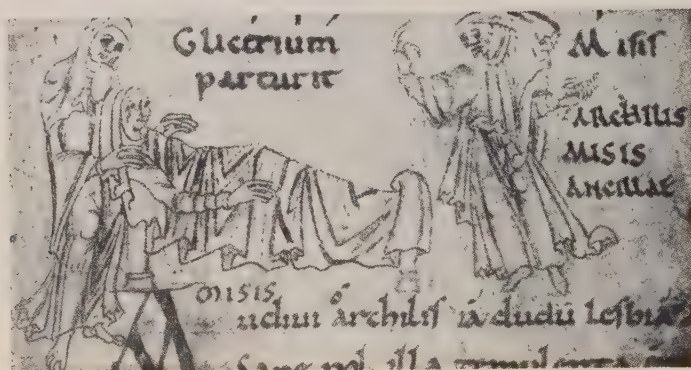 Glicerium
parturit
Misis
ARCHILIS
MISIS
ANCILLAE
misis
archilis iā dudū lesbia
Sane pol illa temulenta